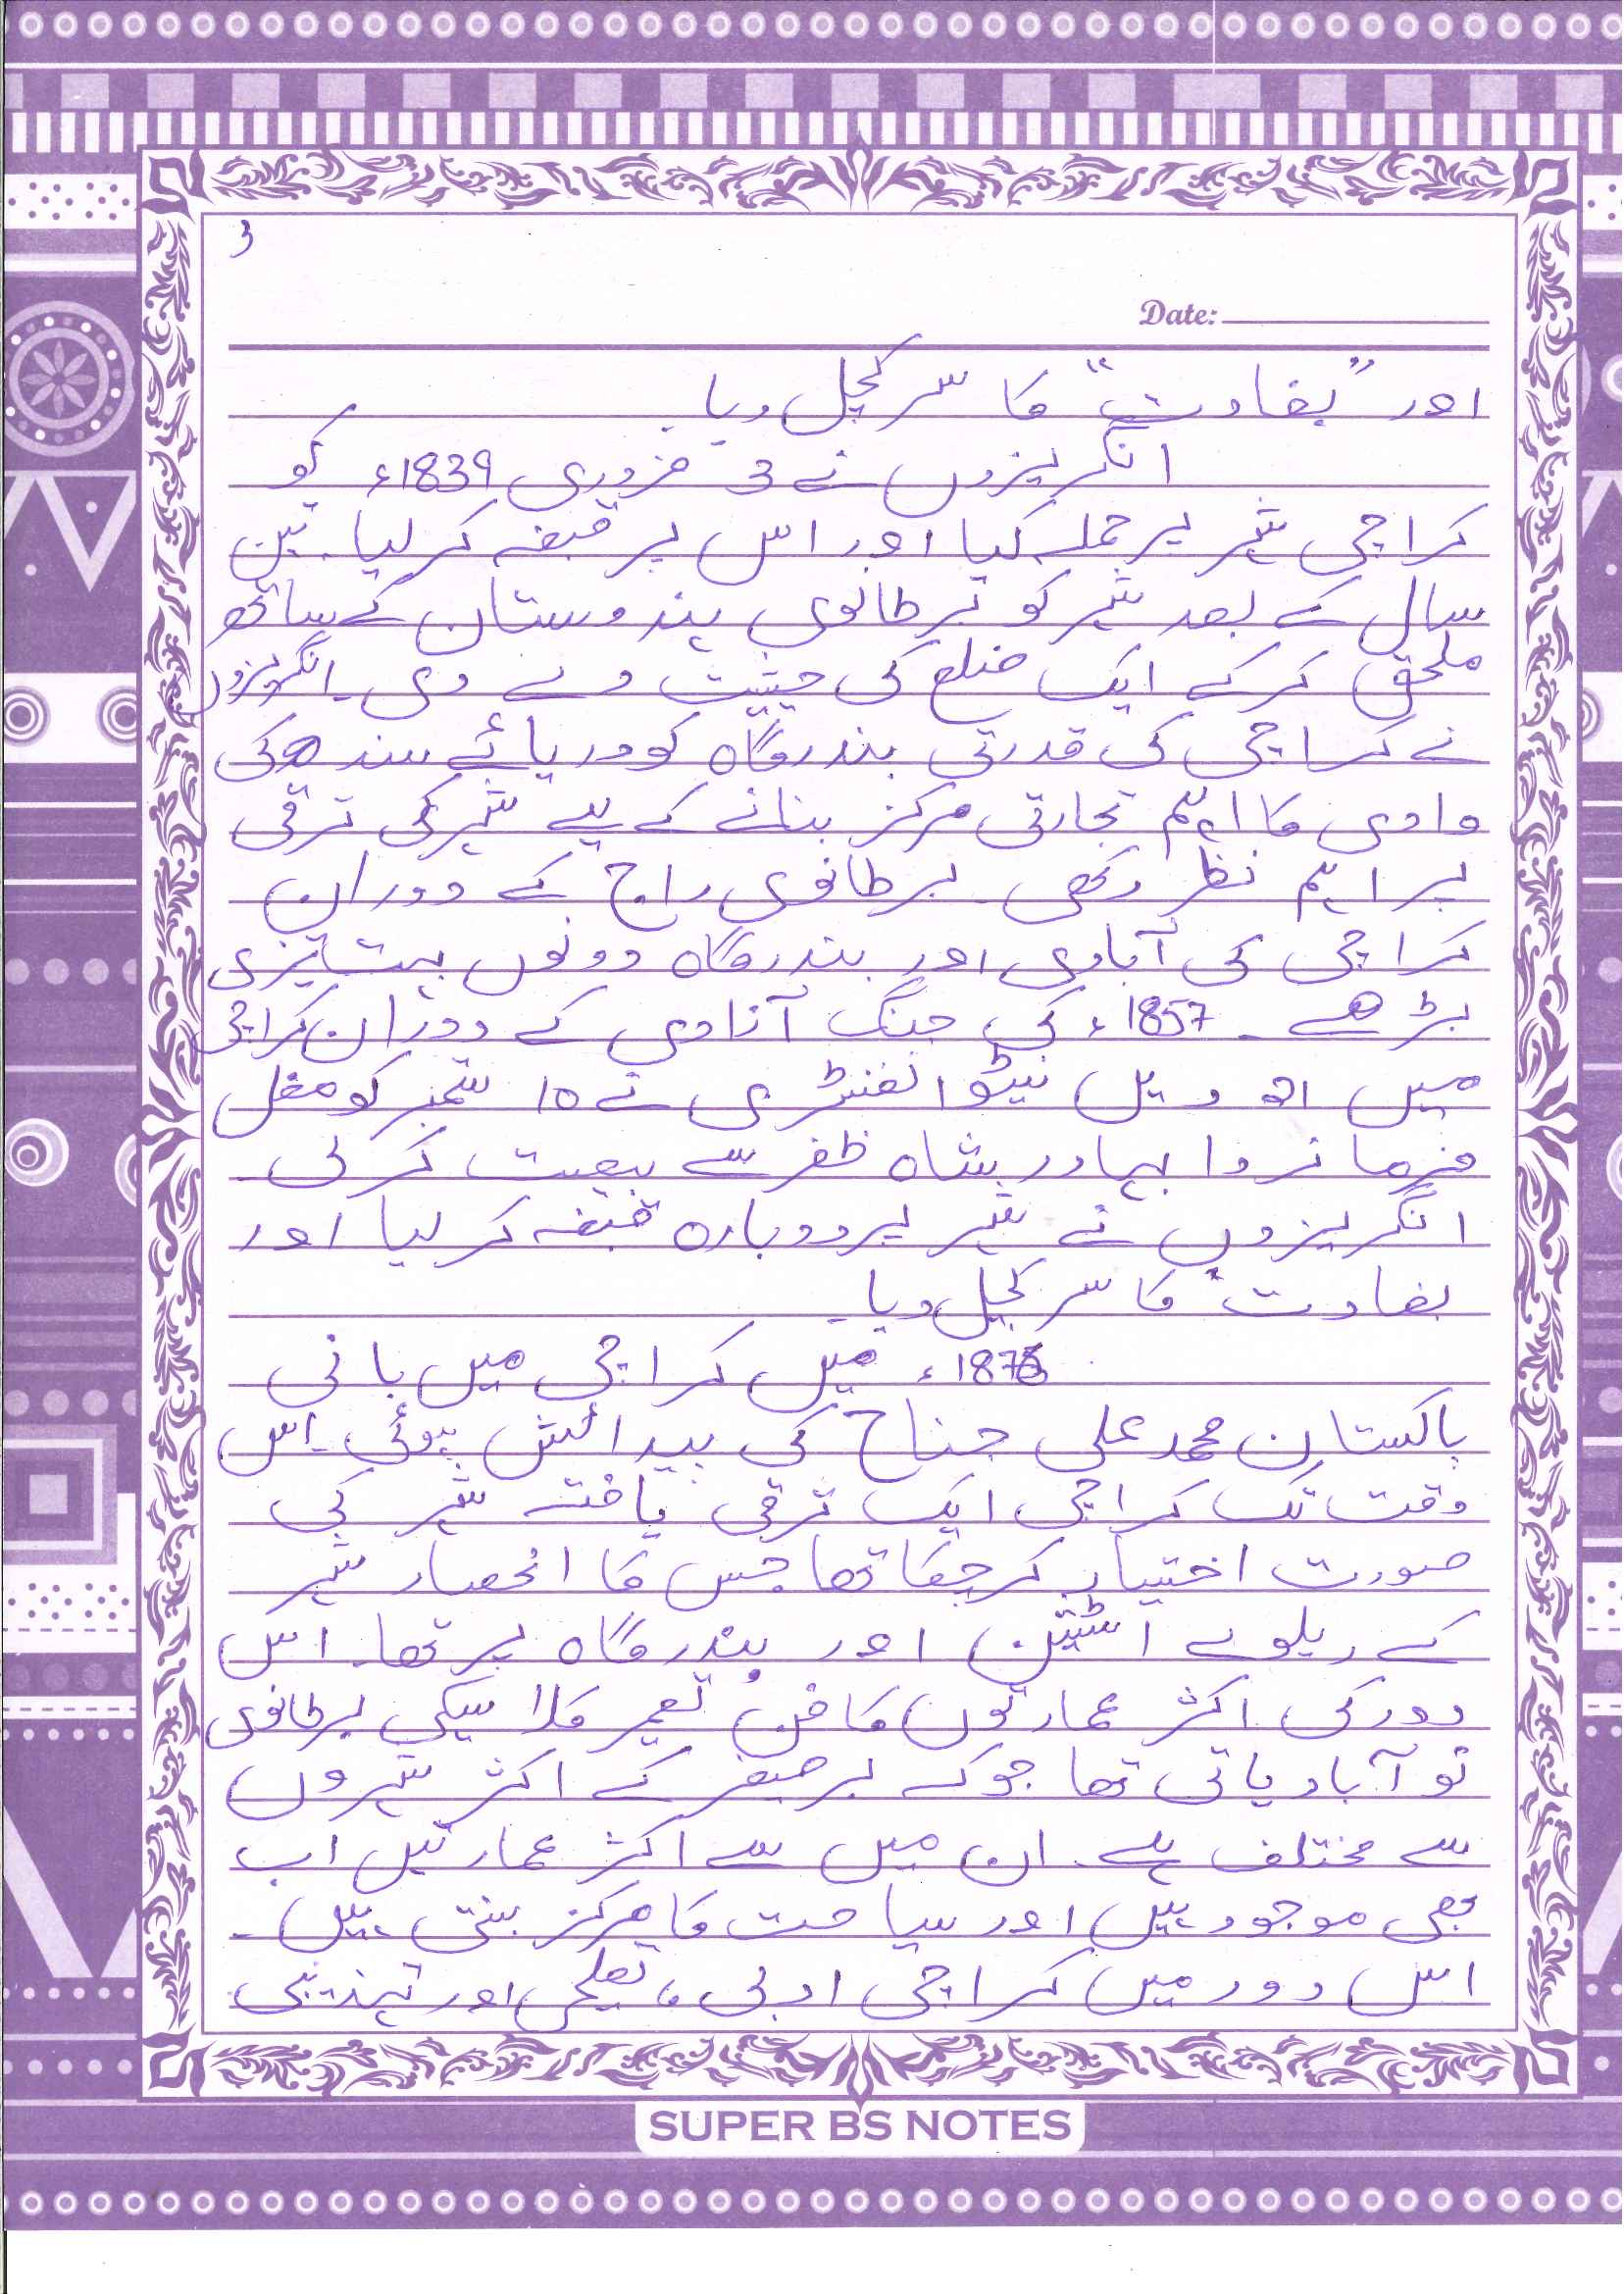 3
Date:
اور ”بغاوت“ کا سر کچل دیا۔
انگریزوں نے 3 فروری 1839ء کو
کراچی شہر پر حملہ کیا اور اس پر قبضہ کر لیا۔ تین
سال کے بعد شہر کو برطانوی ہندوستان کے ساتھ
ملحق کر کے ایک ضلع کی حیثیت دے دی۔ انگریزوں
نے کراچی کی قدرتی بندرگاہ کو دریائے سندھ کی
وادی کا اہم تجارتی مرکز بنانے کے لیے شہر کی ترقی
پر اہم نظر رکھی۔ برطانوی راج کے دوران
کراچی کی آبادی اور بندرگاہ دونوں بہت تیزی
بڑھے۔ 1857ء کی جنگ آزادی کے دوران کراچی
میں 21 ویں نیٹو انفنٹری نے 10 ستمبر کو مغل
فرمانروا بہادر شاہ ظفر سے بیعت کر لی۔
انگریزوں نے شہر پر دوبارہ قبضہ کر لیا اور
بغاوت کا سر کچل دیا۔
1876ء میں کراچی میں بانی
پاکستان محمد علی جناح کی پیدائش ہوئی۔ اس
وقت تک کراچی ایک ترقی یافتہ شہر کی
صورت اختیار کر چکا تھا جس کا انحصار شہر
کے ریلوے اسٹیشن اور بندرگاہ پر تھا۔ اس
دور کی اکثر عمارتوں کا فن تعمیر کلاسیکی برطانوی
نو آبادیاتی تھا جو کے برصغیر کے اکثر شہروں
سے مختلف ہے۔ ان میں سے اکثر عمارتیں اب
بھی موجود ہیں اور سیاحت کا مرکز بنتی ہیں۔
اس دور میں کراچی ادبی، تعلیمی اور تہذیبی
SUPER BS NOTES